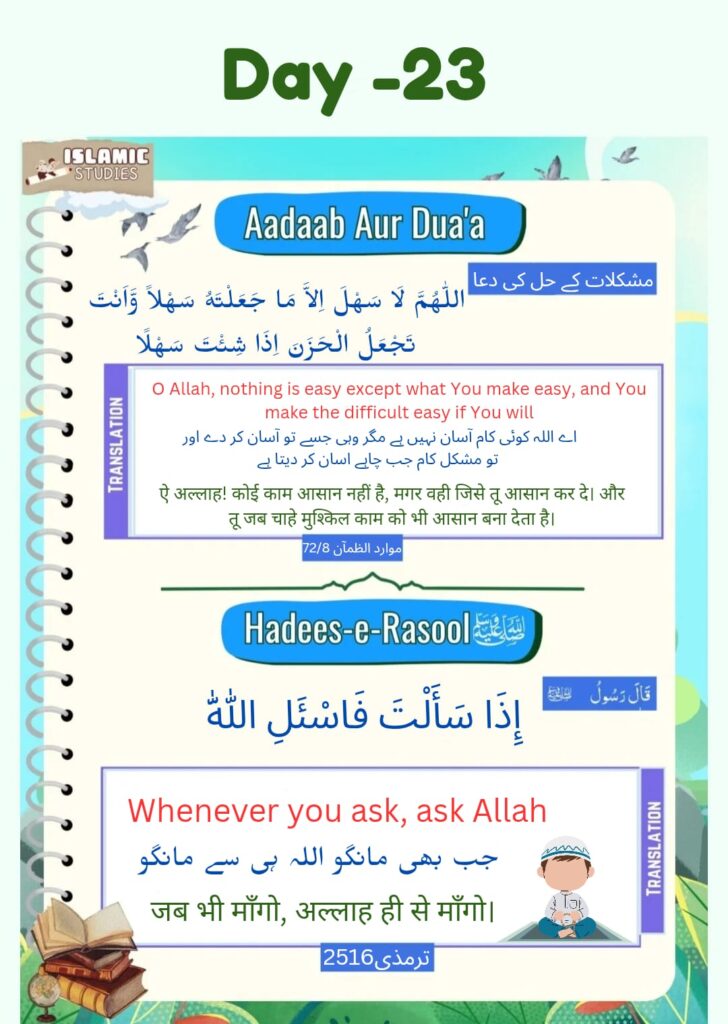 Day -23
ISLAMIC
STUDIES
Aadaab Aur Dua'a
مشکلات کے حل کی دعا
اللّٰهُمَّ لَا سَهْلَ اِلاَّ مَا جَعَلْتَهُ سَهْلاً وَّاَنْتَ
تَجْعَلُ الْحَزَنَ اِذَا شِئْتَ سَهْلًا
TRANSLATION
O Allah, nothing is easy except what You make easy, and You
make the difficult easy if You will
اے اللہ کوئی کام آسان نہیں ہے مگر وہی جسے تو آسان کر دے اور
تو مشکل کام جب چاہے اسان کر دیتا ہے
ऐ अल्लाह! कोई काम आसान नहीं है, मगर वही जिसे तू आसान कर दे। और
तू जब चाहे मुश्किल काम को भी आसान बना देता है।
موارد الظمآن 72/8
Hadees-e-Rasool ﷺ
قَالَ رَسُولُ ﷺ
إِذَا سَأَلْتَ فَاسْئَلِ اللّٰهَ
Whenever you ask, ask Allah
جب بھی مانگو اللہ ہی سے مانگو
जब भी माँगो, अल्लाह ही से माँगो।
TRANSLATION
ترمذی2516